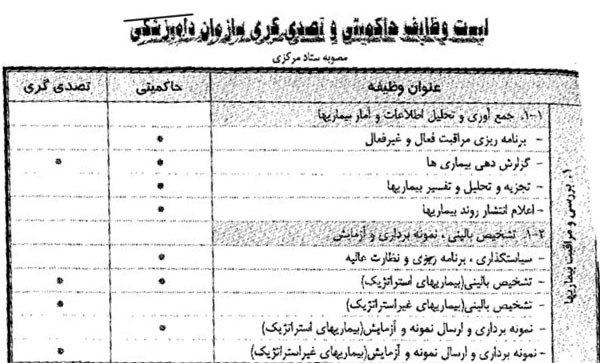 لیست وظایف حاکمیتی و تصدی گری سازمان دامپزشکی
مصوبه ستاد مرکزی
عنوان وظیفه حاکمیتی تصدی گری
۱- بررسی و مراقبت بیماریها
۱-۱. جمع آوری و تحلیل اطلاعات و آمار بیماریها
- برنامه ریزی مراقبت فعال و غیرفعال *
- گزارش دهی بیماری ها * *
- تجزیه و تحلیل و تفسیر بیماریها *
- اعلام انتشار روند بیماریها *
۱-۲. تشخیص بالینی، نمونه برداری و آزمایش
- سیاستگذاری، برنامه ریزی و نظارت عالیه *
- تشخیص بالینی(بیماریهای استراتژیک) * *
- تشخیص بالینی(بیماریهای غیراستراتژیک) *
- نمونه برداری و ارسال نمونه و آزمایش(بیماریهای استراتژیک) *
- نمونه برداری و ارسال نمونه و آزمایش(بیماریهای غیراستراتژیک) *